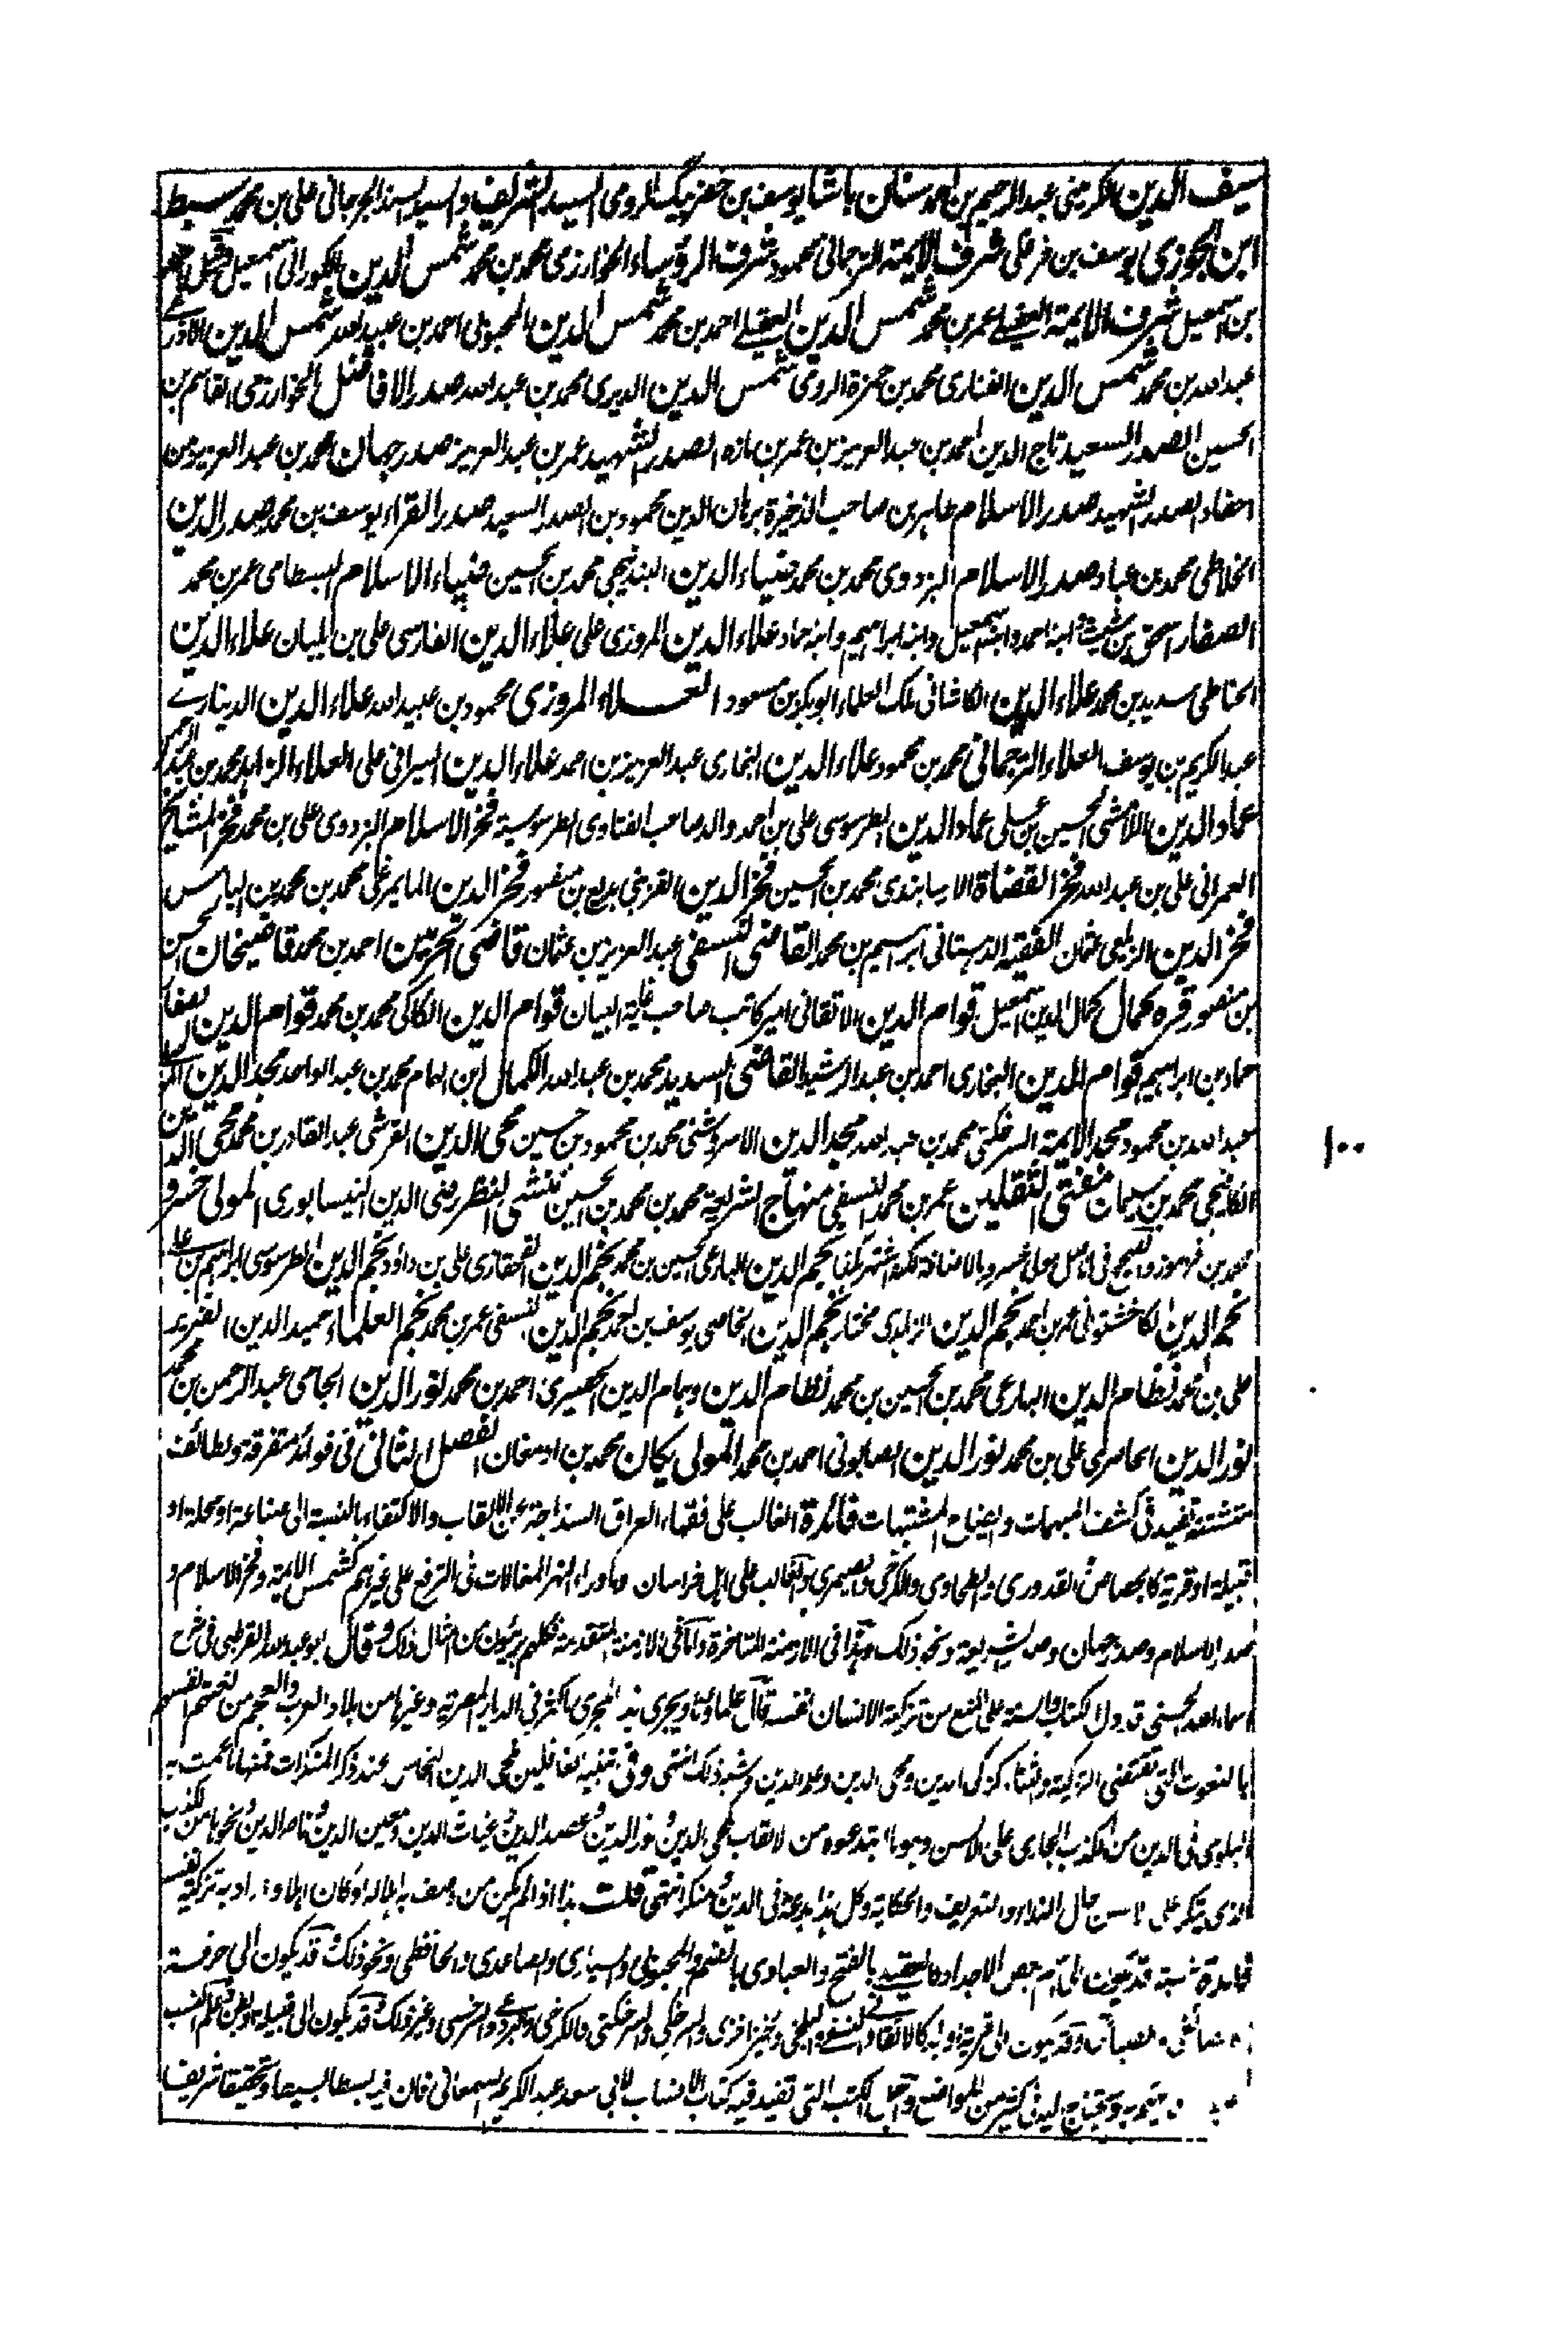 سيف الدين الكرميني عبد الرحيم بن احمد سنان باشا يوسف بن خضر بيك الرومي السيد الشريف والسيد السند الجرجاني علي بن محمد سبط
ابن الجوزي يوسف بن فرغلي شرف الايمة الترجماني محمود شرف الرؤساء الخوارزمي محمد بن محمد شمس الدين الكوراني اسمعيل احمد
بن اسمعيل شرف الايمة العقيلي عمر بن محمد شمس الدين العقيلي احمد بن محمد شمس الدين المحبوبي احمد بن عبيد الله شمس الدين الاذرعي
عبد الله بن محمد شمس الدين الفناري محمد بن حمزة الرومي شمس الدين الديري محمد بن عبد الله صدر الافاضل الخوارزمي القاسم بن
الحسين الصدر السعيد تاج الدين احمد بن عبد العزيز بن عمر بن مازه الصدر الشهيد عمر بن عبد العزيز صدر جهان محمد بن عبد العزيز من
احفاد الصدر الشهيد صدر الاسلام طاهر بن صاحب الذخيرة برهان الدين محمود بن الصدر السعيد صدر القراء يوسف بن محمد صدر الدين
الخلاطي محمد بن عباد صدر الاسلام البزدوي محمد بن محمد ضياء الدين البندنيجي محمد بن الحسين ضياء الاسلام البسطامي عمر بن محمد
الصفار اسحق بن شيث وابنه احمد وابنه اسمعيل وابنه ابراهيم وابنه حماد علاء الدين المروزي علي علاء الدين الفارسي علي بن بلبان علاء الدين
الحناطي سديد بن محمد علاء الدين الكاشاني ملك العلماء ابو بكر بن مسعود العلاء المروزي محمود بن عبيد الله علاء الدين الديناري
عبد الكريم بن يوسف العلاء الترجماني محمد بن محمود علاء الدين البخاري عبد العزيز بن احمد علاء الدين السيرافي علي العلاء الزاهد محمد بن عبد الرحمن
عماد الدين اللامشي الحسين بن علي عماد الدين الطرسوسي علي بن احمد والد صاحب الفتاوى الطرسوسية فخر الاسلام البزدوي علي بن محمد فخر المشايخ
العمراني علي بن عبد الله فخر القضاة الارسابندي محمد بن الحسين فخر الدين القزبني بديع بن منصور فخر الدين المايمرغي محمد بن محمد بن الياس
فخر الدين الزيلعي عثمان الفقيه الدهستاني ابراهيم بن محمد القاضي النسفي عبد العزيز بن عثمان قاضي الحرمين احمد بن محمد قاضيخان الحسن
بن منصور قره كمال كمال الدين اسمعيل قوام الدين الاتقاني امير كاتب صاحب غاية البيان قوام الدين الكاكي محمد بن محمد قوام الدين الصفار
حماد بن ابراهيم قوام الدين البخاري احمد بن عبد الرشيد القاضي السديد محمد بن عبد الله الكمال ابن الهمام محمد بن عبد الواحد مجد الدين
عبد الله بن محمود مجد الايمة السرخكتي محمد بن عبد الله مجد الدين الاسروشني محمد بن محمود بن حسين محي الدين القرشي عبد القادر بن محمد محي الدين
الكافيجي محمد بن سليمان مفتي الثقلين عمر بن محمد النسفي منهاج الشريعة محمد بن محمد بن الحسين منشي النظر رضي الدين النيسابوري المولى خسرو
محمد بن فرموز والصحيح في الاصل مولى خسرو بالاضافة لكنه اشتهر هكذا نجم الدين البارعي الحسين بن محمد نجم الدين القحفازي علي بن داود نجم الدين الطرسوسي ابراهيم بن علي
نجم الدين الكاخشتواني عمر بن احمد نجم الدين الزاهدي مختار نجم الدين الخاصي يوسف بن احمد نجم الدين النسفي عمر بن محمد نجم العلماء حميد الدين الضرير
علي بن محمد نظام الدين البارعي محمد بن الحسين بن محمد نظام الدين وهمام الدين الحصيري احمد بن محمد نور الدين الجامي عبد الرحمن بن محمد
نور الدين الحاصري علي بن محمد نور الدين الصابوني احمد بن محمد المولى يكان محمد بن ارمغان الفصل الثاني في فوائد متفرقة ولطائف
متشتتة تفيد في كشف المبهمات وايضاح المشتبهات فائدة الغالب على فقهاء العراق السذاجة عن الالقاب والاكتفاء بالنسبة الى صناعة او محلة او
قبيلة او قرية كالجصاص والقدوري والطحاوي والكرخي والصيمري والغالب على اهل خراسان وما وراء النهر المغالات في الترفع على غيرهم كشمس الايمة وفخر الاسلام و
صدر الاسلام وصدر جهان وصدر الشريعة ونحو ذلك وهذا في الازمنة المتاخرة واما في الازمنة المتقدمة فكلهم بريئون من امثال ذلك وقال ابو عبد الله القرطبي في شرح
اسماء الله الحسنى قد دل الكتاب والسنة على المنع من تزكية الانسان نفسه قال علماؤنا ويجري هذا المجرى ما كثر في الديار المصرية وغيرها من بلاد العرب والعجم من نعتهم انفسهم
بالنعوت التي تقتضي التزكية والثناء كزكي الدين ومحي الدين وعلم الدين وشبه ذلك انتهى وفي تنبيه الغافلين لمحي الدين النحاس عند ذكر المنكرات فمنها ما عمت به
البلوى في الدين من الكذب الجاري على الالسن وهو ما ابتدعوه من الالقاب كمحي الدين ونور الدين وعضد الدين وغياث الدين ومعين الدين وناصر الدين ونحوها من الكذب
الذي يتكرر على الالسن حال النداء والتعريف والحكاية وكل هذا بدعة في الدين ومنكر انتهى قلت هذا اذا لم يكن من وصف به اهلا له او كان اهلا واراد به تزكية نفسه
فائدة النسبة قد تكون الى اسم بعض الاجداد كالعقيلي بالفتح والعبادي بالضم والمحبوبي والسياري والصاعدي والحافظي ونحو ذلك وقد تكون الى حرفة
وقد تكون الى قرية او بلد كالاتقاني والنسفي والبلخي والخيزاخزي والسرخكي والسرخكتي والكرخي والبردعي والسرخسي وغير ذلك وقد تكون الى قبيلة او بطن وعلم النسب
ويحتاج اليه في كثير من المواضع واجل الكتب التي تفيد فيه كتاب الانساب لابي سعد عبد الكريم السمعاني فان فيه بسطا بسيطا وتحقيقا شريفا
١٠٠